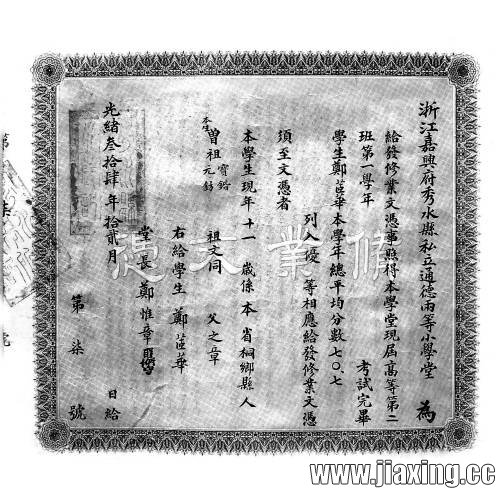 浙江嘉興府秀水縣私立通德兩等小學堂 為
給發修業文憑事照得本學堂現屆高等第二
班第一學年 考試完畢
學生鄭蓝華本學年總平均分數七〇.七
列入優等相應給發修業文憑
須至文憑者
本學生現年十一歲係本省桐鄉縣人
本生曾祖寶鍇元鈁 祖文同 父之章
右給學生 鄭蓝華
堂長 鄭惟章
光緒叁拾肆年拾貳月 日給
第柒號
修業文憑
www.jiaxing.cc